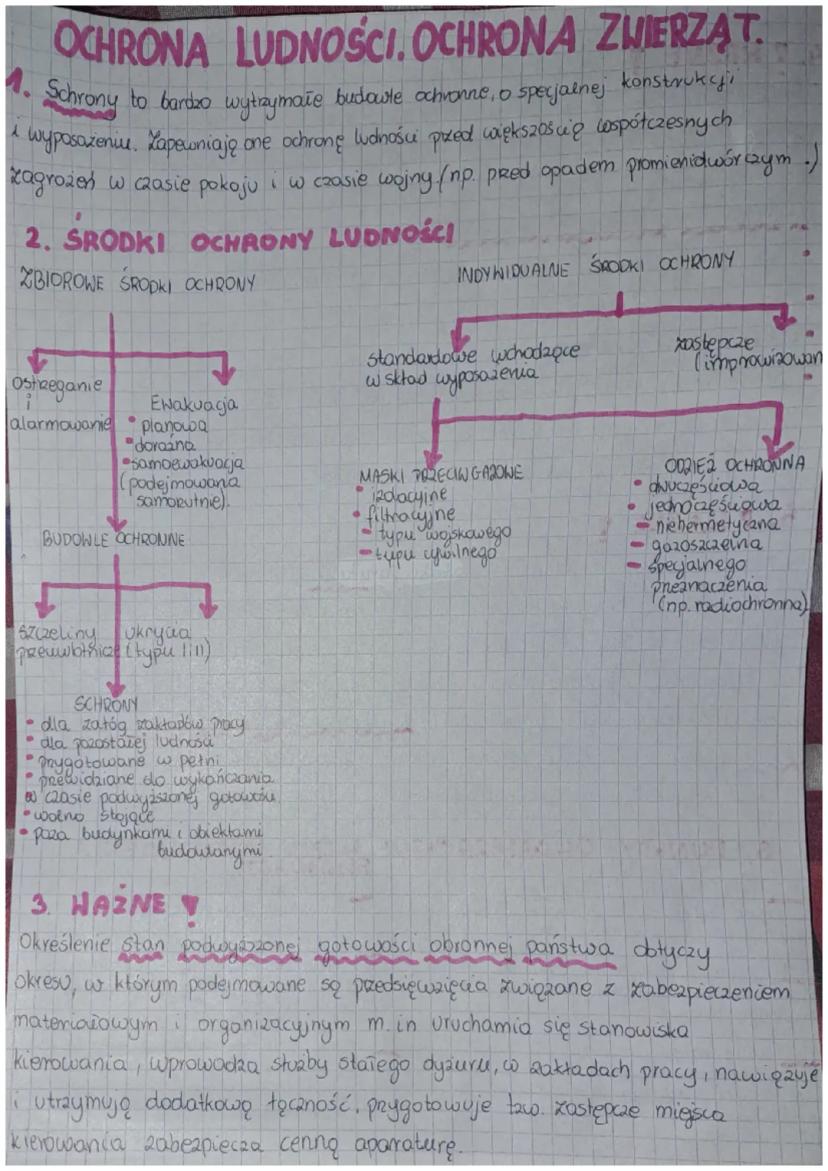 OCHRONA LUDNOŚCI. OCHRONA ZWIERZĄT.
1. Schrony to bardzo wytrzymałe budowle ochronne, o specjalnej konstrukcji
i wyposażeniu. Zapewniają one ochronę ludności przed większością współczesnych
zagrożeń w czasie pokoju i w czasie wojny (np. przed opadem promieniotwórczym.)
2. ŚRODKI OCHRONY LUDNOŚCI
ZBIOROWE ŚRODKI OCHRONY
Ostrzeganie
i
alarmowanie
Ewakuacja
• planowa
• doraźna
• samoewakuacja
(podejmowania
samorzutnie).
BUDOWLE OCHRONNE
szczeliny
przeciwlotnicze
ukrycia
(typu I i II)
SCHRONY
• dla załóg zakładów pracy
• dla pozostałej ludności
• przygotowane w pełni
• przewidziane do wykańczania
w czasie podwyższonej gotowości
• wolno stojące
• poza budynkami i obiektami
budowlanymi
INDYWIDUALNE ŚRODKI OCHRONY
standardowe wchodzące
w skład wyposażenia
zastępcze
(improwizowan
MASKI PRZECIWGAZOWE
• izolacyjne
• filtracyjne
- typu wojskowego
- typu cywilnego
ODZIEŻ OCHRONNA
• dwuczęściowa
• jednoczęściowa
- niehermetyczna
- gazoszczelna
- specjalnego
przeznaczenia
(np. radiochronna)
3. WAŻNE !
Określenie stan podwyższonej gotowości obronnej państwa dotyczy
okresu, w którym podejmowane są przedsięwzięcia związane z zabezpieczeniem
materiałowym i organizacyjnym m.in uruchamia się stanowiska
kierowania, wprowadza służby stałego dyżuru, w zakładach pracy, nawiązuje
i utrzymują dodatkową łączność, przygotowuje tzw. zastępcze miejsca
kierowania zabezpiecza cenną aparaturę.